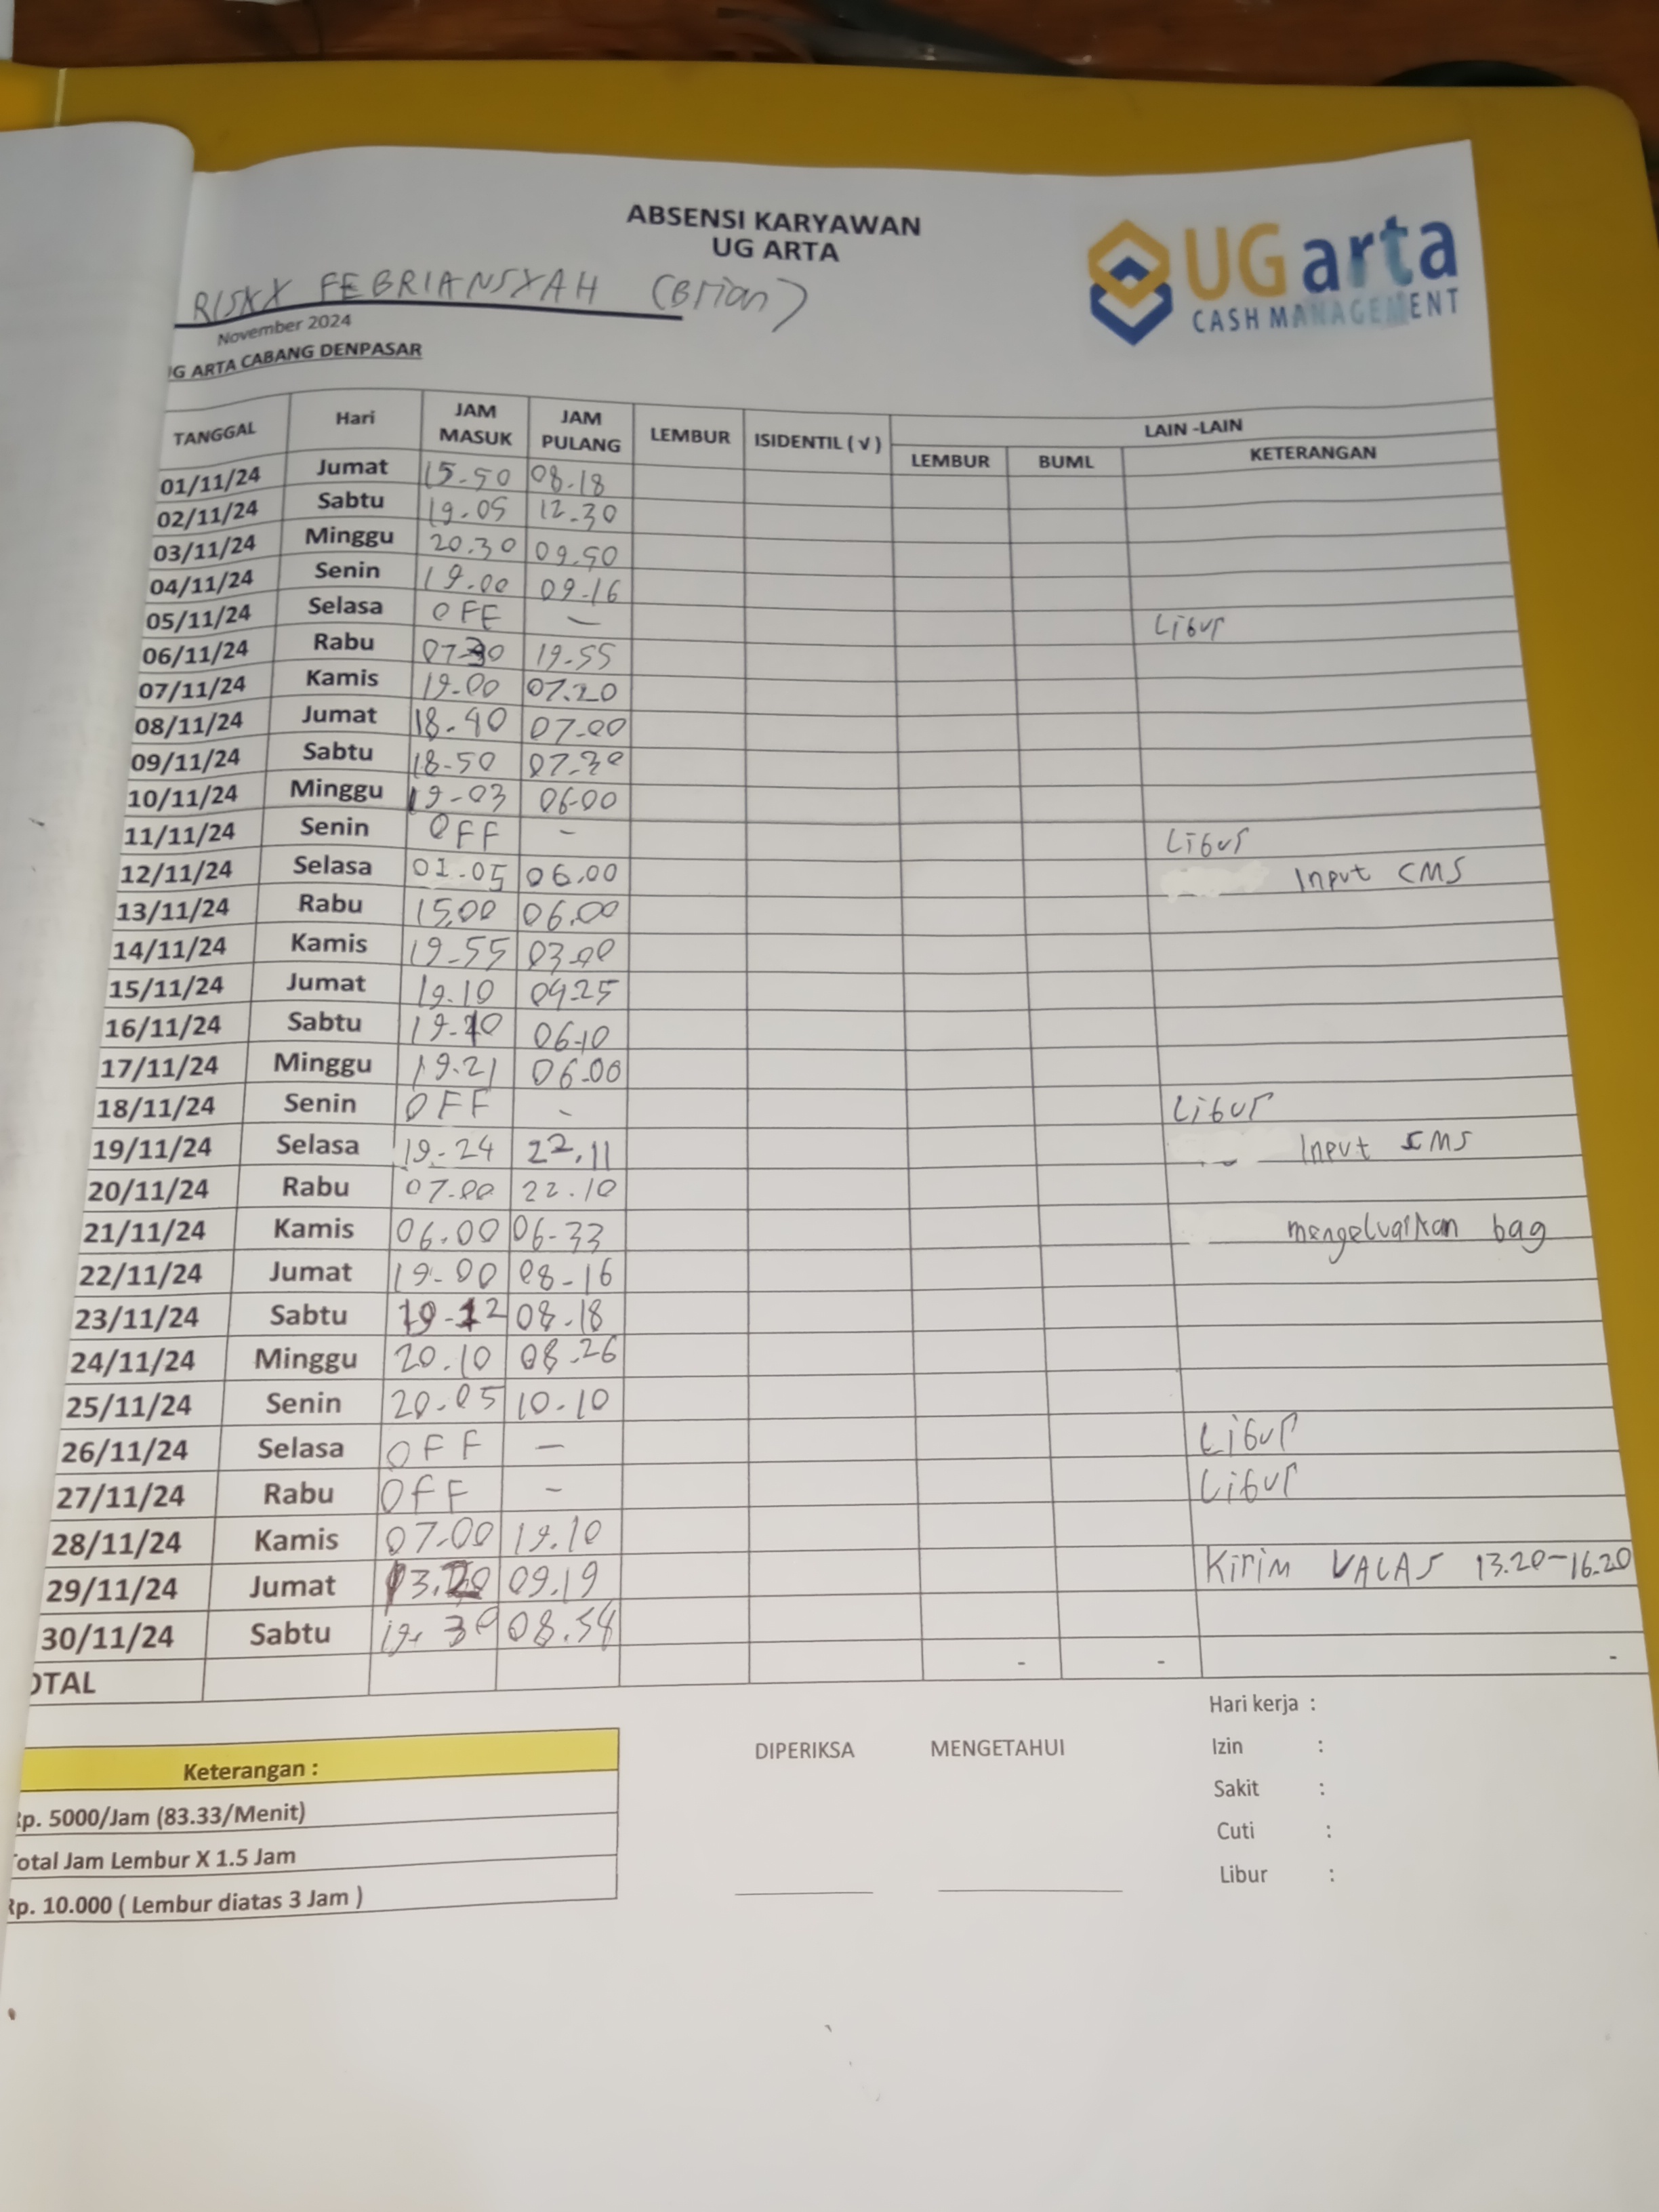 ABSENSI KARYAWAN
UG ARTA
UG arta
CASH MANAGEMENT
RISKY FEBRIANSYAH (Brian)
November 2024
UG ARTA CABANG DENPASAR
TANGGAL Hari JAM MASUK JAM PULANG LEMBUR ISIDENTIL ( √ ) LAIN -LAIN
LEMBUR BUML KETERANGAN
01/11/24 Jumat 15.50 08.18
02/11/24 Sabtu 19.05 12.30
03/11/24 Minggu 20.30 09.50
04/11/24 Senin 19.00 09.16
05/11/24 Selasa OFF — Libur
06/11/24 Rabu 07.30 19.55
07/11/24 Kamis 19.00 07.20
08/11/24 Jumat 18.40 07.00
09/11/24 Sabtu 18.50 07.30
10/11/24 Minggu 19-03 06.00
11/11/24 Senin OFF - Libur
12/11/24 Selasa 01.05 06.00 Input CMS
13/11/24 Rabu 15.00 06.00
14/11/24 Kamis 19.55 03.00
15/11/24 Jumat 19.10 04.25
16/11/24 Sabtu 19.10 06.10
17/11/24 Minggu 19.21 06.00
18/11/24 Senin OFF - Libur
19/11/24 Selasa 19.24 22.11 Input CMS
20/11/24 Rabu 07.00 22.10
21/11/24 Kamis 06.00 06-33 mengeluarkan bag
22/11/24 Jumat 19-00 08-16
23/11/24 Sabtu 19-12 08.18
24/11/24 Minggu 20.10 08.26
25/11/24 Senin 20.05 10.10
26/11/24 Selasa OFF — Libur
27/11/24 Rabu OFF - Libur
28/11/24 Kamis 07.00 19.10
29/11/24 Jumat 13.20 09.19 Kirim VALAS 13.20-16.20
30/11/24 Sabtu 19.30 08.54
OTAL - - -
Hari kerja :
Izin :
Sakit :
Cuti :
Libur :
DIPERIKSA MENGETAHUI
Keterangan :
Rp. 5000/Jam (83.33/Menit)
Total Jam Lembur X 1.5 Jam
Rp. 10.000 ( Lembur diatas 3 Jam )